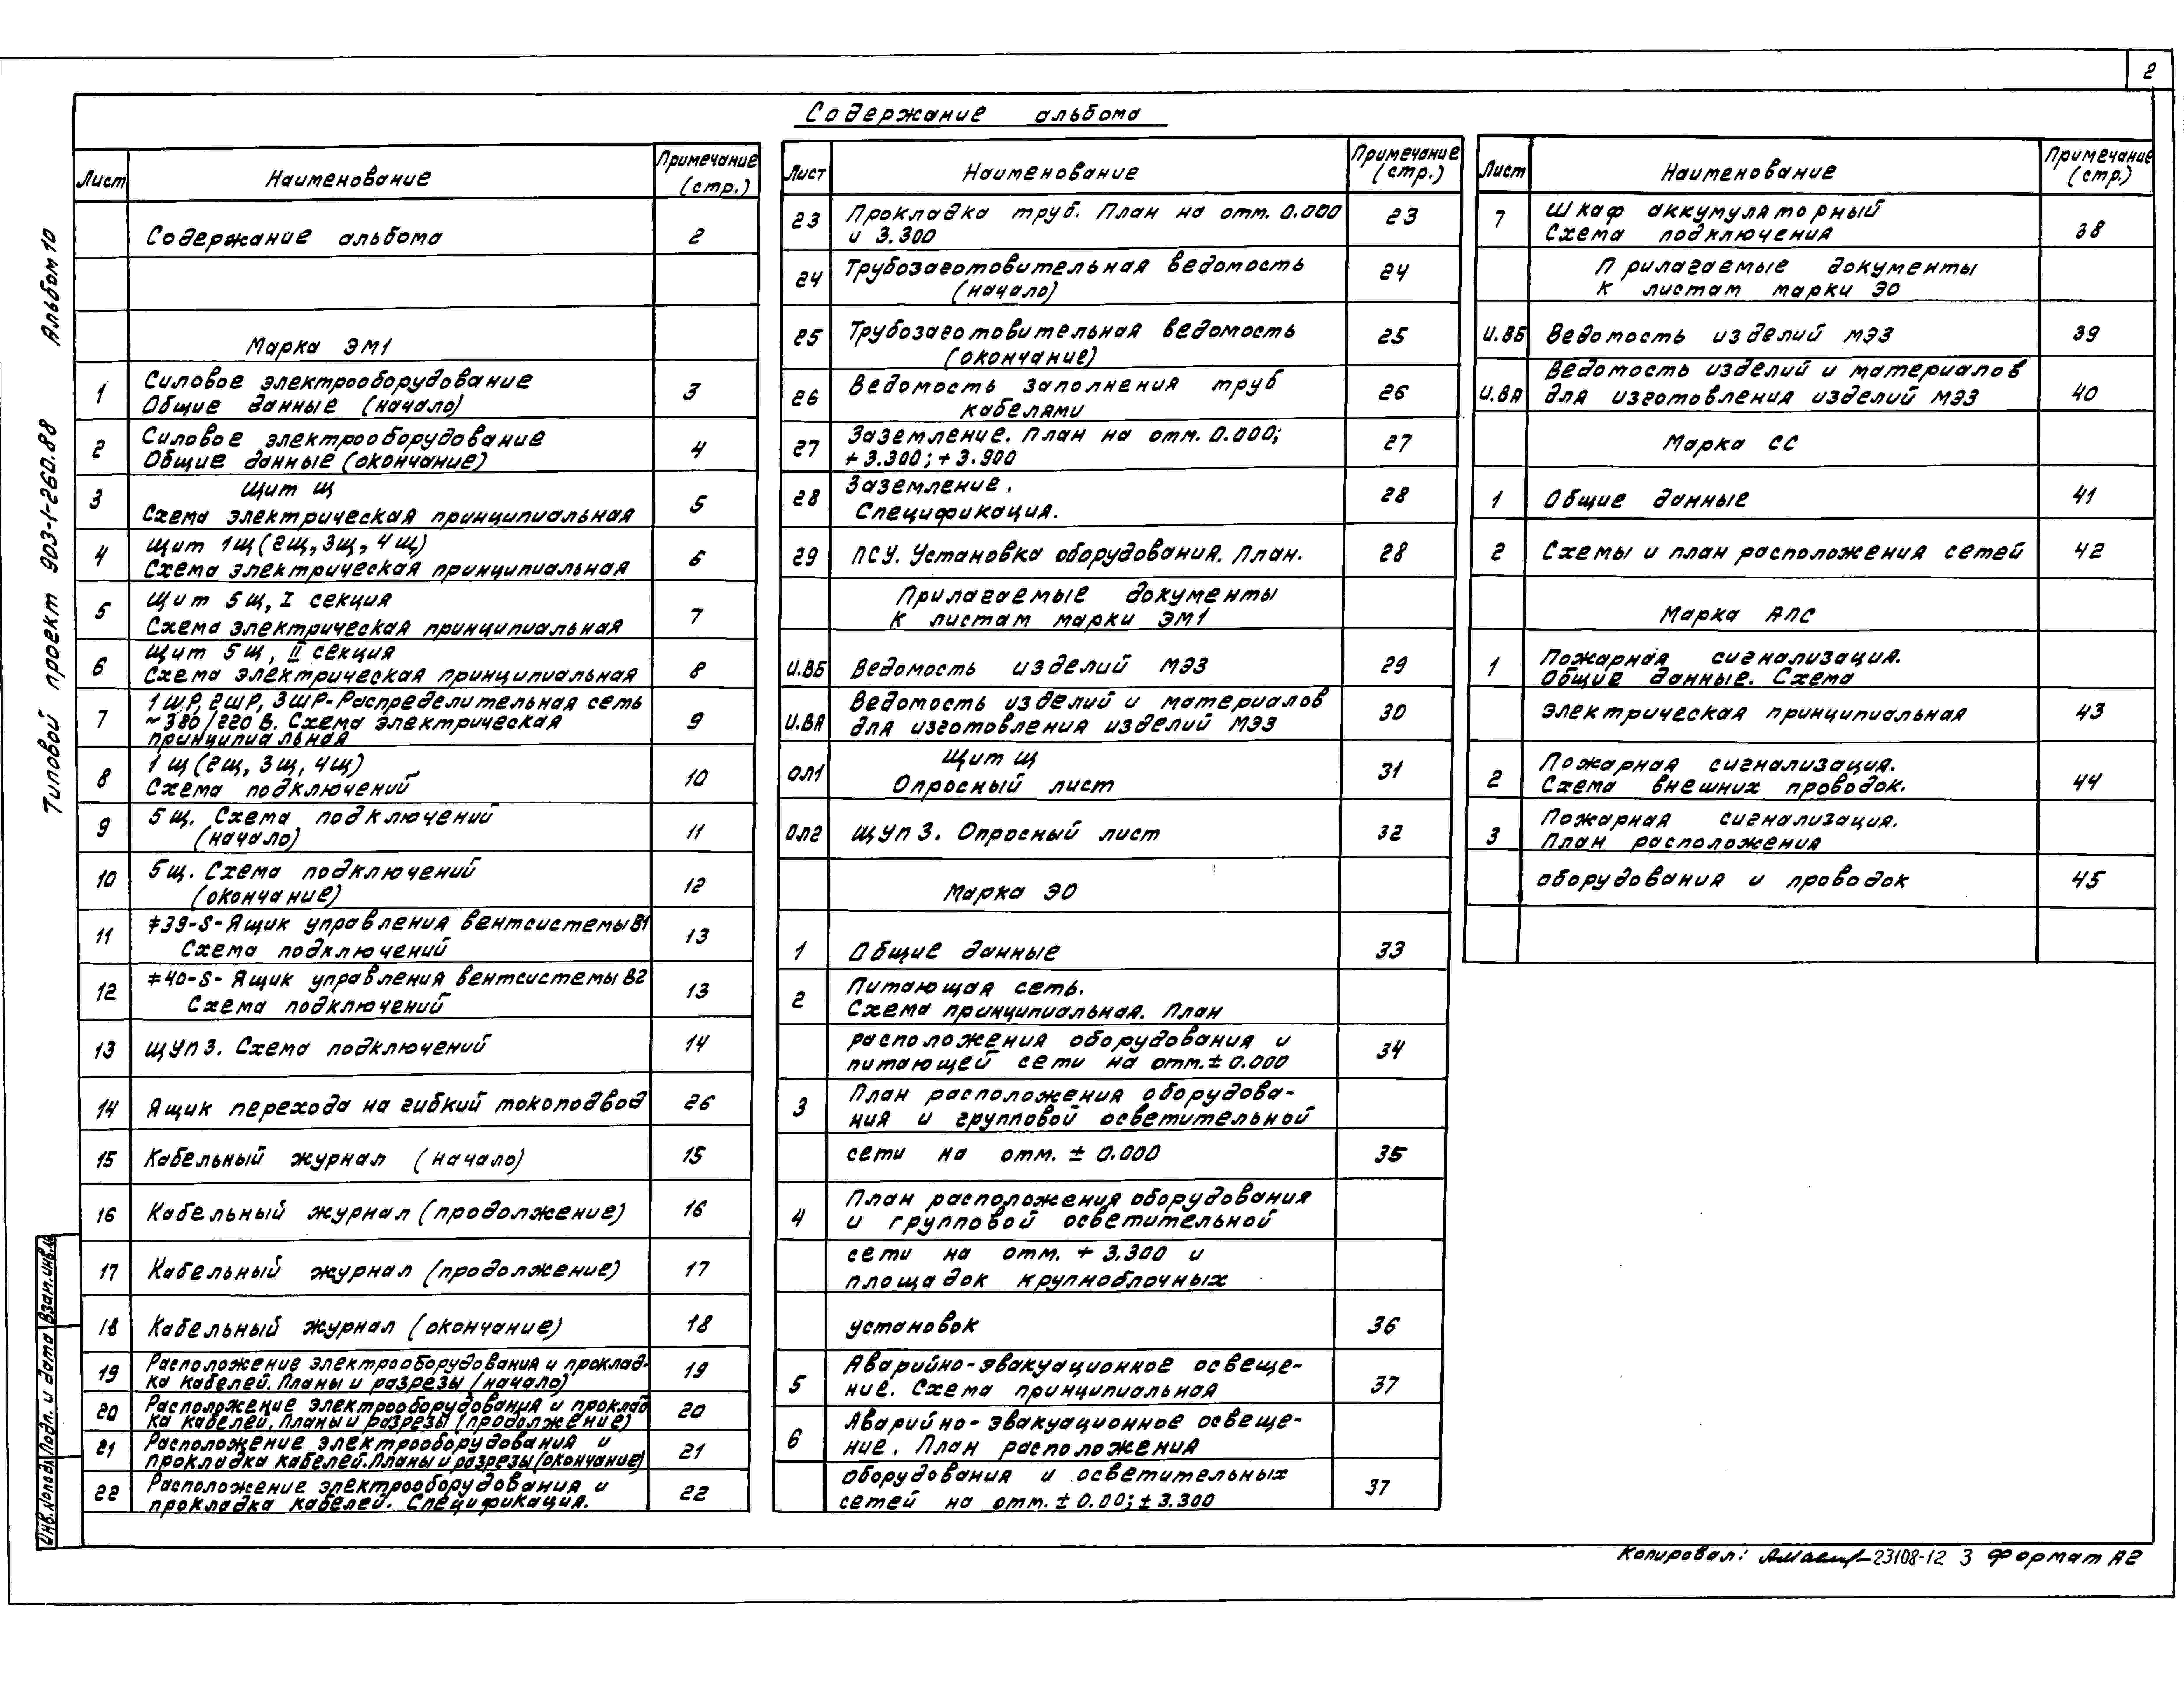 2
Содержание альбома
Лист Наименование Примечание (стр.)
Содержание альбома 2
Марка ЭМ1
1 Силовое электрооборудование
Общие данные (начало) 3
2 Силовое электрооборудование
Общие данные (окончание) 4
3 Щит Щ
Схема электрическая принципиальная 5
4 Щит 1щ (2щ, 3щ, 4щ)
Схема электрическая принципиальная 6
5 Щит 5щ, I секция
Схема электрическая принципиальная 7
6 Щит 5щ, II секция
Схема электрическая принципиальная 8
7 1ШР, 2ШР, 3ШР-Распределительная сеть
~380/220 В. Схема электрическая
принципиальная 9
8 1щ (2щ, 3щ, 4щ)
Схема подключений 10
9 5щ. Схема подключений
(начало) 11
10 5щ. Схема подключений
(окончание) 12
11 ≠39-S-Ящик управления вентсистемы В1
Схема подключений 13
12 ≠40-S-Ящик управления вентсистемы В2
Схема подключений 13
13 щУП3. Схема подключений 14
14 Ящик перехода на гибкий токоподвод 26
15 Кабельный журнал (начало) 15
16 Кабельный журнал (продолжение) 16
17 Кабельный журнал (продолжение) 17
18 Кабельный журнал (окончание) 18
19 Расположение электрооборудования и проклад-
ка кабелей. Планы и разрезы (начало) 19
20 Расположение электрооборудования и проклад
ка кабелей. Планы и разрезы (продолжение) 20
21 Расположение электрооборудования и
прокладка кабелей. Планы и разрезы (окончание) 21
22 Расположение электрооборудования и
прокладка кабелей. Спецификация. 22
Лист Наименование Примечание (стр.)
23 Прокладка труб. План на отм. 0.000
и 3.300 23
24 Трубозаготовительная ведомость
(начало) 24
25 Трубозаготовительная ведомость
(окончание) 25
26 Ведомость заполнения труб
кабелями 26
27 Заземление. План на отм. 0.000;
+3.300; +3.900 27
28 Заземление.
Спецификация. 28
29 ПСУ. Установка оборудования. План. 28
Прилагаемые документы
к листам марки ЭМ1
И.ВБ Ведомость изделий МЭЗ 29
И.ВА Ведомость изделий и материалов
для изготовления изделий МЭЗ 30
ОЛ1 Щит Щ
Опросный лист 31
ОЛ2 ЩУП3. Опросный лист 32
Марка ЭО
1 Общие данные 33
2 Питающая сеть.
Схема принципиальная. План
расположения оборудования и
питающей сети на отм. ± 0.000 34
3 План расположения оборудова-
ния и групповой осветительной
сети на отм. ± 0.000 35
4 План расположения оборудования
и групповой осветительной
сети на отм. + 3.300 и
площадок крупноблочных
установок 36
5 Аварийно-эвакуационное освеще-
ние. Схема принципиальная 37
6 Аварийно-эвакуационное освеще-
ние. План расположения
оборудования и осветительных
сетей на отм. ± 0.00; ± 3.300 37
Лист Наименование Примечание (стр.)
7 Шкаф аккумуляторный
Схема подключения 38
Прилагаемые документы
к листам марки ЭО
И.ВБ Ведомость изделий МЭЗ 39
И.ВА Ведомость изделий и материалов
для изготовления изделий МЭЗ 40
Марка СС
1 Общие данные 41
2 Схемы и план расположения сетей 42
Марка АПС
1 Пожарная сигнализация.
Общие данные. Схема
электрическая принципиальная 43
2 Пожарная сигнализация.
Схема внешних проводок. 44
3 Пожарная сигнализация.
План расположения
оборудования и проводок 45
Типовой проект 903-1-260.88 Альбом 10
Инв.№подл. Подп. и дата Взам.инв.№
Копировал: 23108-12 3 Формат А2